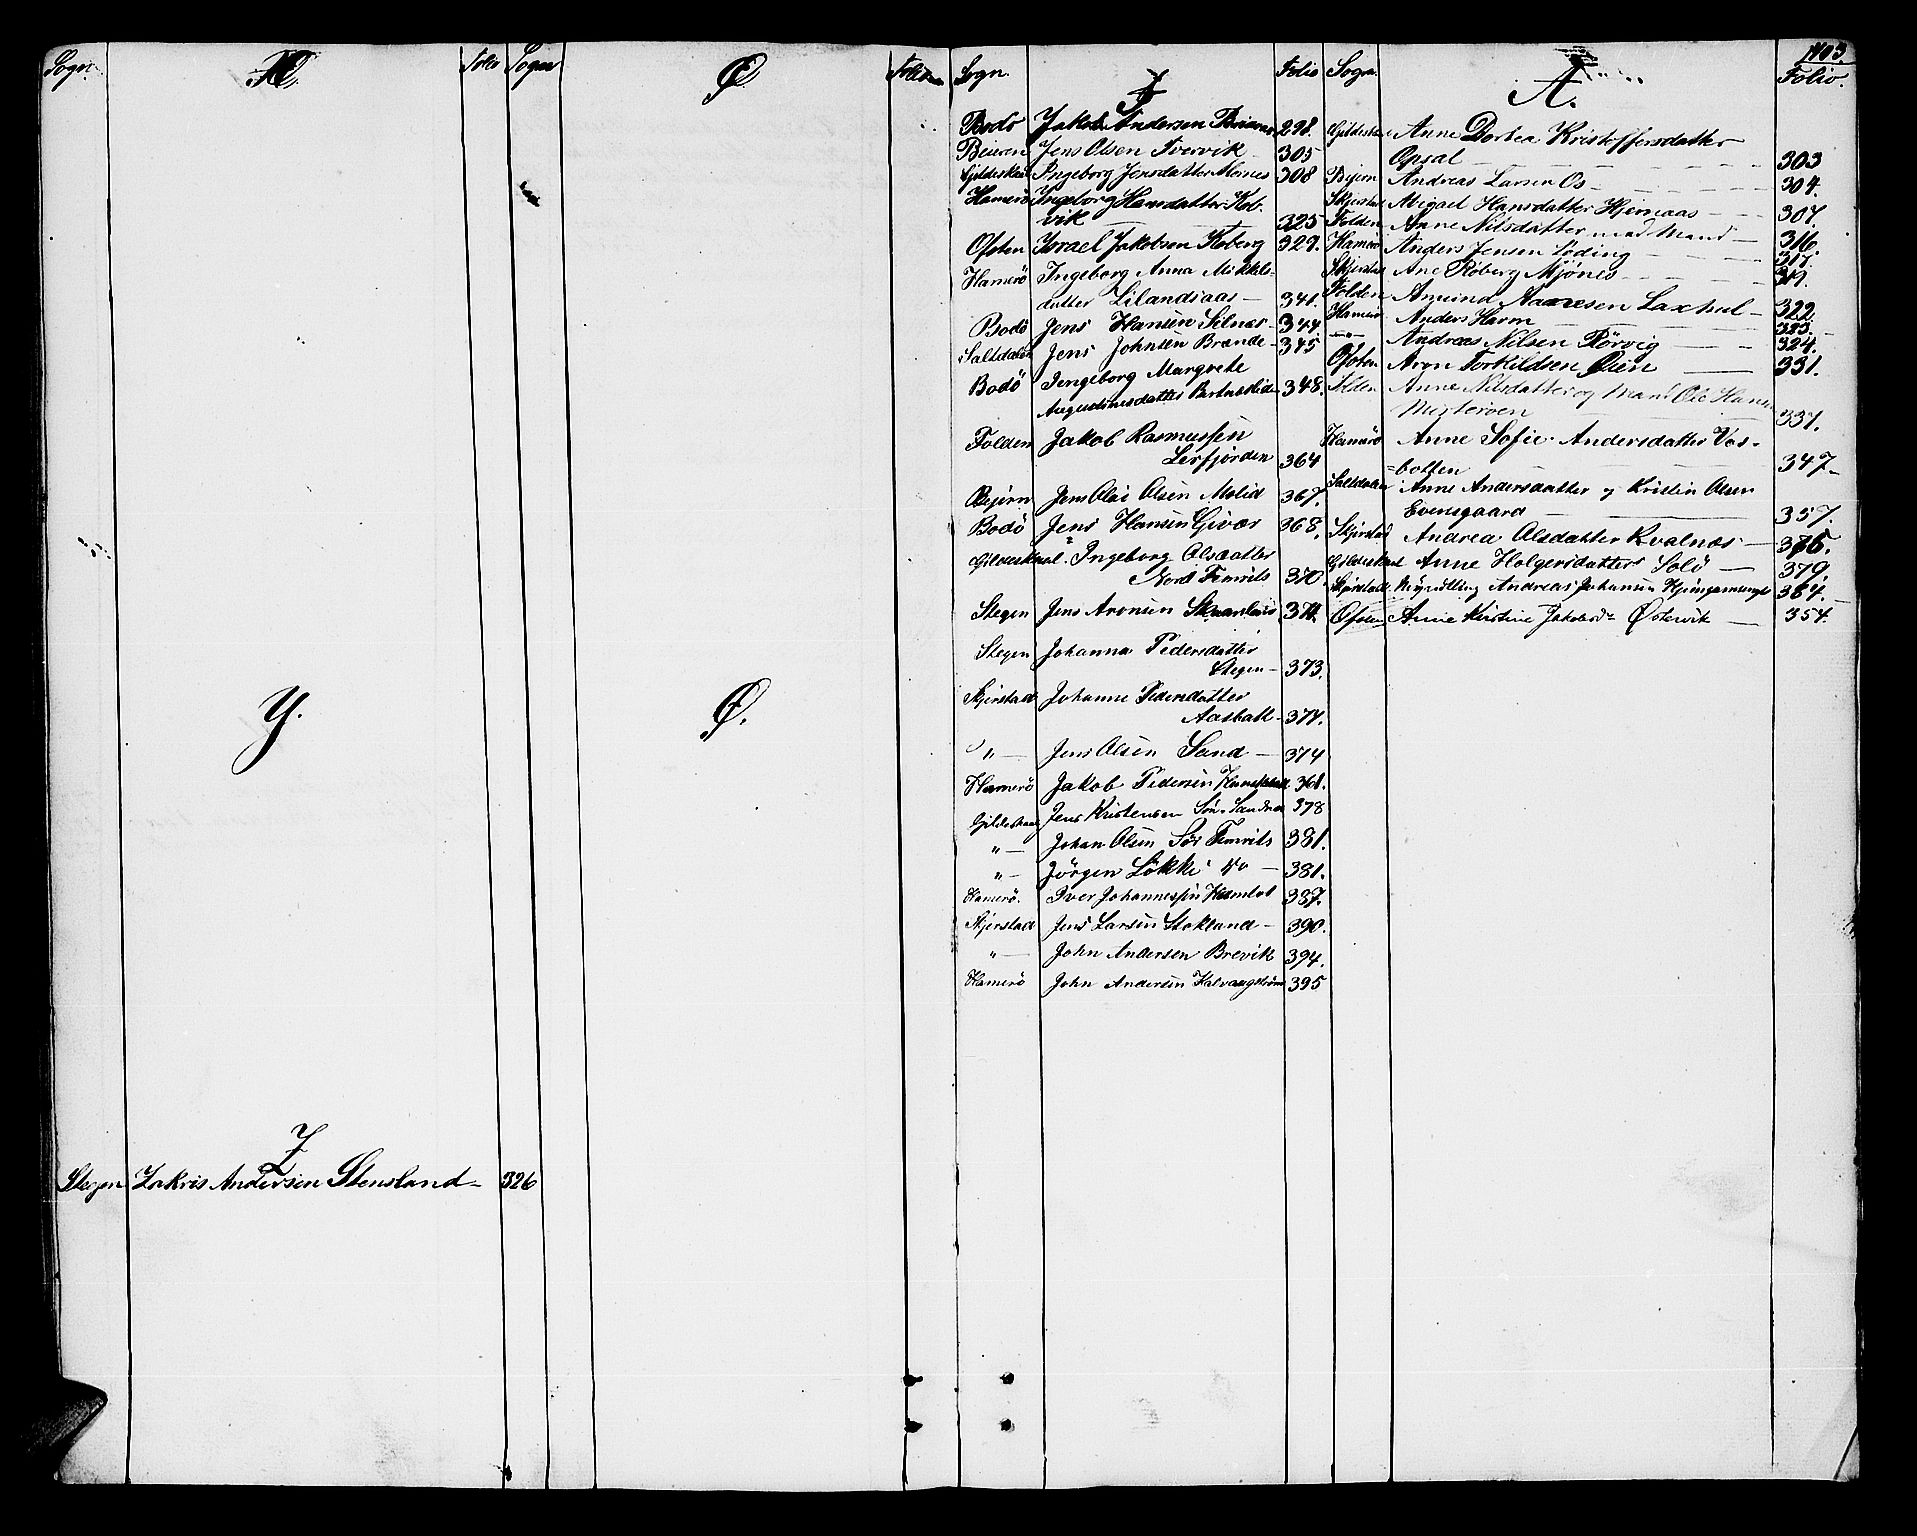 Sogn. Æ. Folio
Y.
Z
Stegen Zakris Andersen Stensland - 326
Sogn Ø Folio
Ø.
Sogn. I Folio
Bodö Jakob Andersen 298.
Beieren Jens Olsen Tvervik 305
Gildeskaal Ingeborg Jensdatter 308
Hamerö Ingeborg Hansdatter Kob-
vik — 325
Ofoten Israel Jakobsen Koberg 329.
Hamerö Ingeborg Anna Mikkels-
datter Lilandsaas — 341.
Bodö Jens Hansen Selnæs - 344
Saltdalen Jens Johnsen Brænde - 345
Bodö Ingeborg Margrete
Augustinusdatter 348.
Folden Jakob Rasmussen
Leifjorden 364
Bejern Jens Olai Olsen Molid 367.
Bodö Jens Hansen Givær 368.
Gildeskaal. Ingeborg Olsdatter
Nord Femris 370.
Stegen Jens Aronsen Skaanlanis 371.
Stegen Johanna Pedersdatter
Stegen - 373.
Skjerstad Johanne Pedersdatter
Aasbakk - 377.
" — Jens Olsen Sand — 374
Hamerö Jakob Pedersen 361.
Gildeskaal Jens Kristensen Sön. Sandnæs 378
" — Johan Olsen Sör Femris 381.
" — Jörgen Lökke do — 381.
Hamerö. Iver Johannessen Hamlot 387.
Skjerstad Jens Larsen Stokland — 390.
" — John Andersen Brevik 394.
Hamerö John Andersen Kalvaagström 395
403
Sogn. A. Folio.
Gildeskaal Anne Dortea Kristoffersdatter
Opsal — 303
Bejern Andreas Larsen Os — 304.
Skjerstad Abigael Hansdatter Hjemaas — 307.
Folden Anne Nilsdatter med Mand — 316.
Hamerö Anders Jensen Löding — 317.
Skjerstad Ane Röberg Mjönes — 319.
Folden Amund Aanesen Laxhul — 322.
Hamerö Anders Harm — 323.
— " — Andreas Nilsen Rörvig — 324.
Ofoten Aron Torkildsen Öien — 331.
Folden Anne Nilsdatter og Mand Ole Hansen
Misterven — 337.
Hamerö Anne Sofie Andersdatter Vas-
=botten — 347
Saltdalen Anne Andersdatter og Kristen Olsen
Evensgaard — 357.
Skjerstad Andrea Olsdatter Kvalnæs — 375.
Gildeskaal Anne Holgersdatter Solö — 379.
Skjerstad Andreas Johansen 364.
Ofoten Anne Kristine Jakobsd. Östervik — 354.